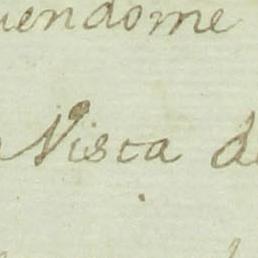 uendome
Vista de